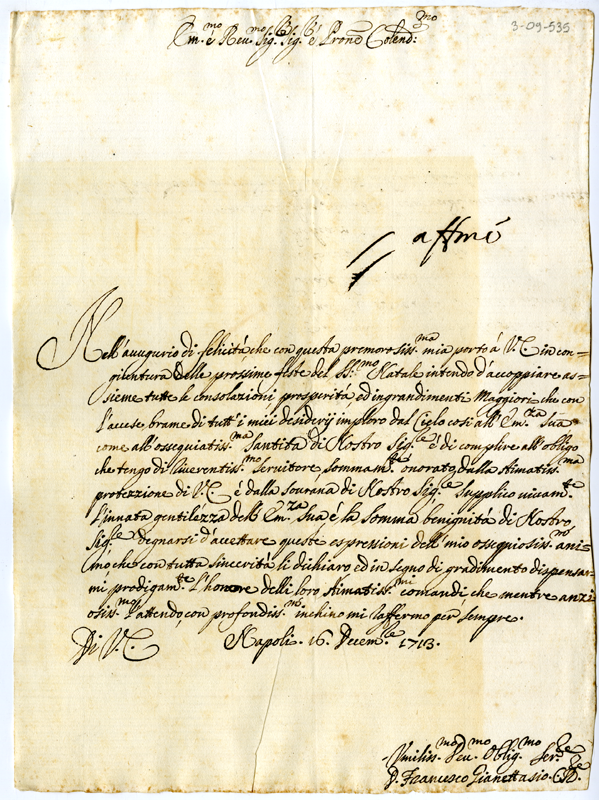 3-09-535
Em.mo é Reu.mo Sig.re Sig.re é Prone Colend:mo
affmé
Nell'auugurio di felicitá che con questa premorosiss.ma mia porto á V.E. in con-
giuntura delle prossime feste del SS.mo Natale intendo d'accoppiare as-
sieme tutte le consolazioni prosperitá ed ingrandimenti Maggiori che con
l'accese brame di tutt'i miei desiderij imploro dal Cielo cosi all'Em.za Sua
come all'ossequiatiss.ma Santitá di Nostro Sig.re é di complire all'obligo
che tengo di riuerentiss.mo Seruitore sommam.te onorato dalla stimatiss.ma
protezzione di V.E. é dalla sourana di Nostro Sig.re Supplico viuam.te
l'innata gentilezza dell'Em.za Sua é la somma benignitá di Nostro
Sig.re degnarsi d'accettare queste espressioni dell'mio ossequiosiss.mo ani-
mo che con tutta sinceritá li dichiaro ed in segno di gradimento dispensar-
mi prodigam.te l'honore delli loro stimatiss.mi comandi che mentre anzi
osiss.mo l'attendo, con profondiss.mo inchino mi raffermo per sempre.
Di V.E. Napoli. 16. Decem.re 1713.
Vmiliss.mo Deu.mo Oblig.mo Ser.re
D. Francesco Gianettasio.